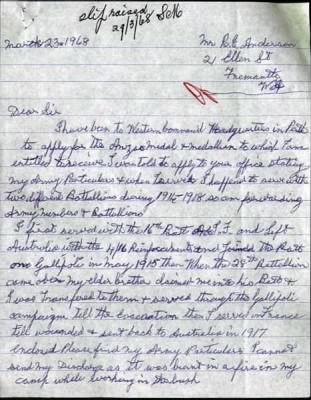 slip raised
29/3/68
March 23-1968
Mr R.E. Anderson
21 Ellen St
Fremantle
W.A
Dear Sir
I have been to Western Command Headquarters in Perth
to apply for the Anzac Medal & medallion to which I am
entitled to receive & I was told to apply to your office stating
my Army Particulars & when I served I happened to serve with
two different Battallions during 1914-1918 so am forwarding
Army Numbers & Battallions
I first served with the 16th Batt A.I.F. and left
Australia with the 4/16 Reinforcements and Joined the Batt
on Gallipoli in May 1915 then When the 28th Battallion
came over my elder brother claimed me into his Batt &
I was transfered to them & served through the Gallipoli
campaign till the Evacuation then I served in France
till wounded & sent back to Australia in 1917
Enclosed Please find my Army Particulars I cannot
send my Discharge as it was burnt in a fire in my
camp while working in the bush